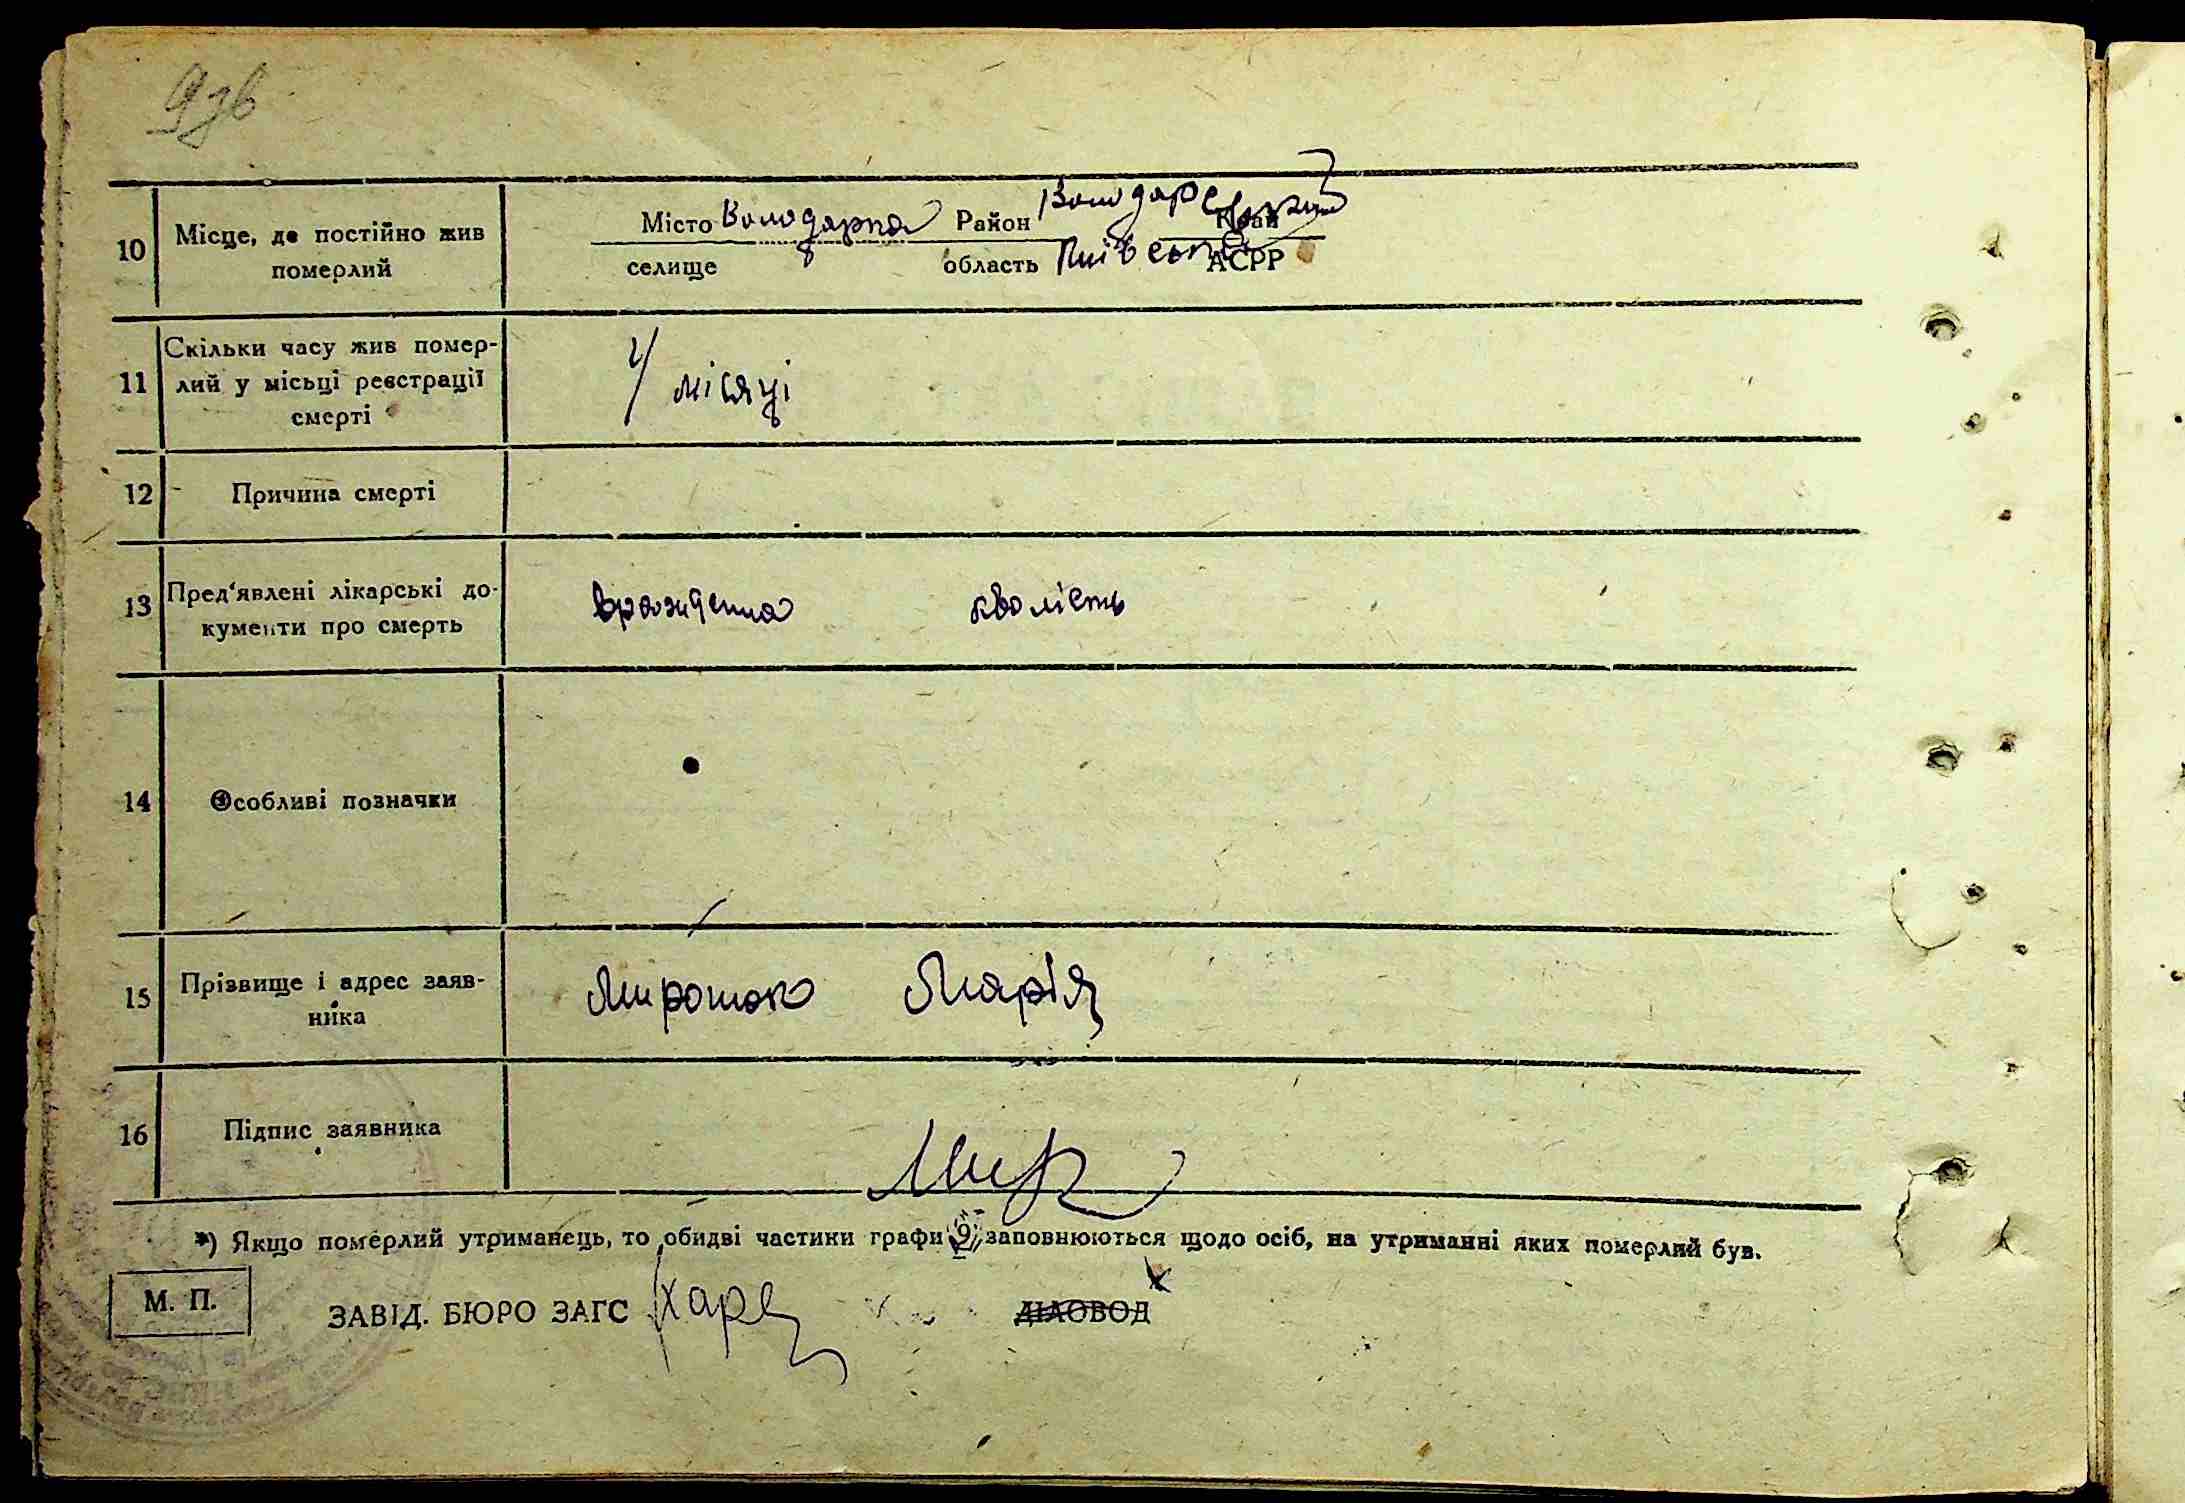 9зв
10 Місце, де постійно жив померлий
Місто Володарка Район Володарський Край
селище область Київська АСРР
11 Скільки часу жив помер-
лий у місьці реєстрації
смерті
4 місяці
12 Причина смерті
13 Пред'явлені лікарські до-
кументи про смерть
врожденна кволість
14 Особливі позначки
15 Прізвище і адрес заяв-
ника
Мирошок Марія
16 Підпис заявника
Мир
*) Якщо померлий утриманець, то обидві частини графи „9" заповнюються щодо осіб, на утриманні яких померлий був.
М. П.
ЗАВІД. БЮРО ЗАГС ДІЛОВОД